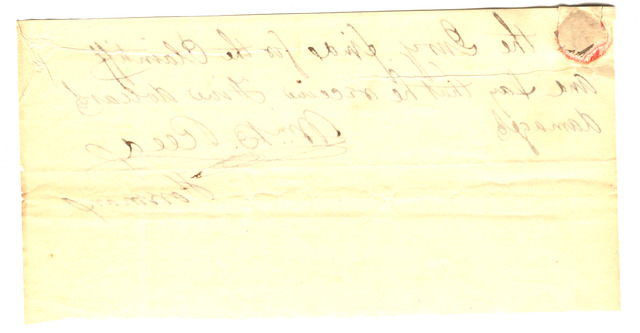 the Jury finds for the Plaintiff
and say that he receive Five dollars
damages
Wm. B. Reed
Foreman